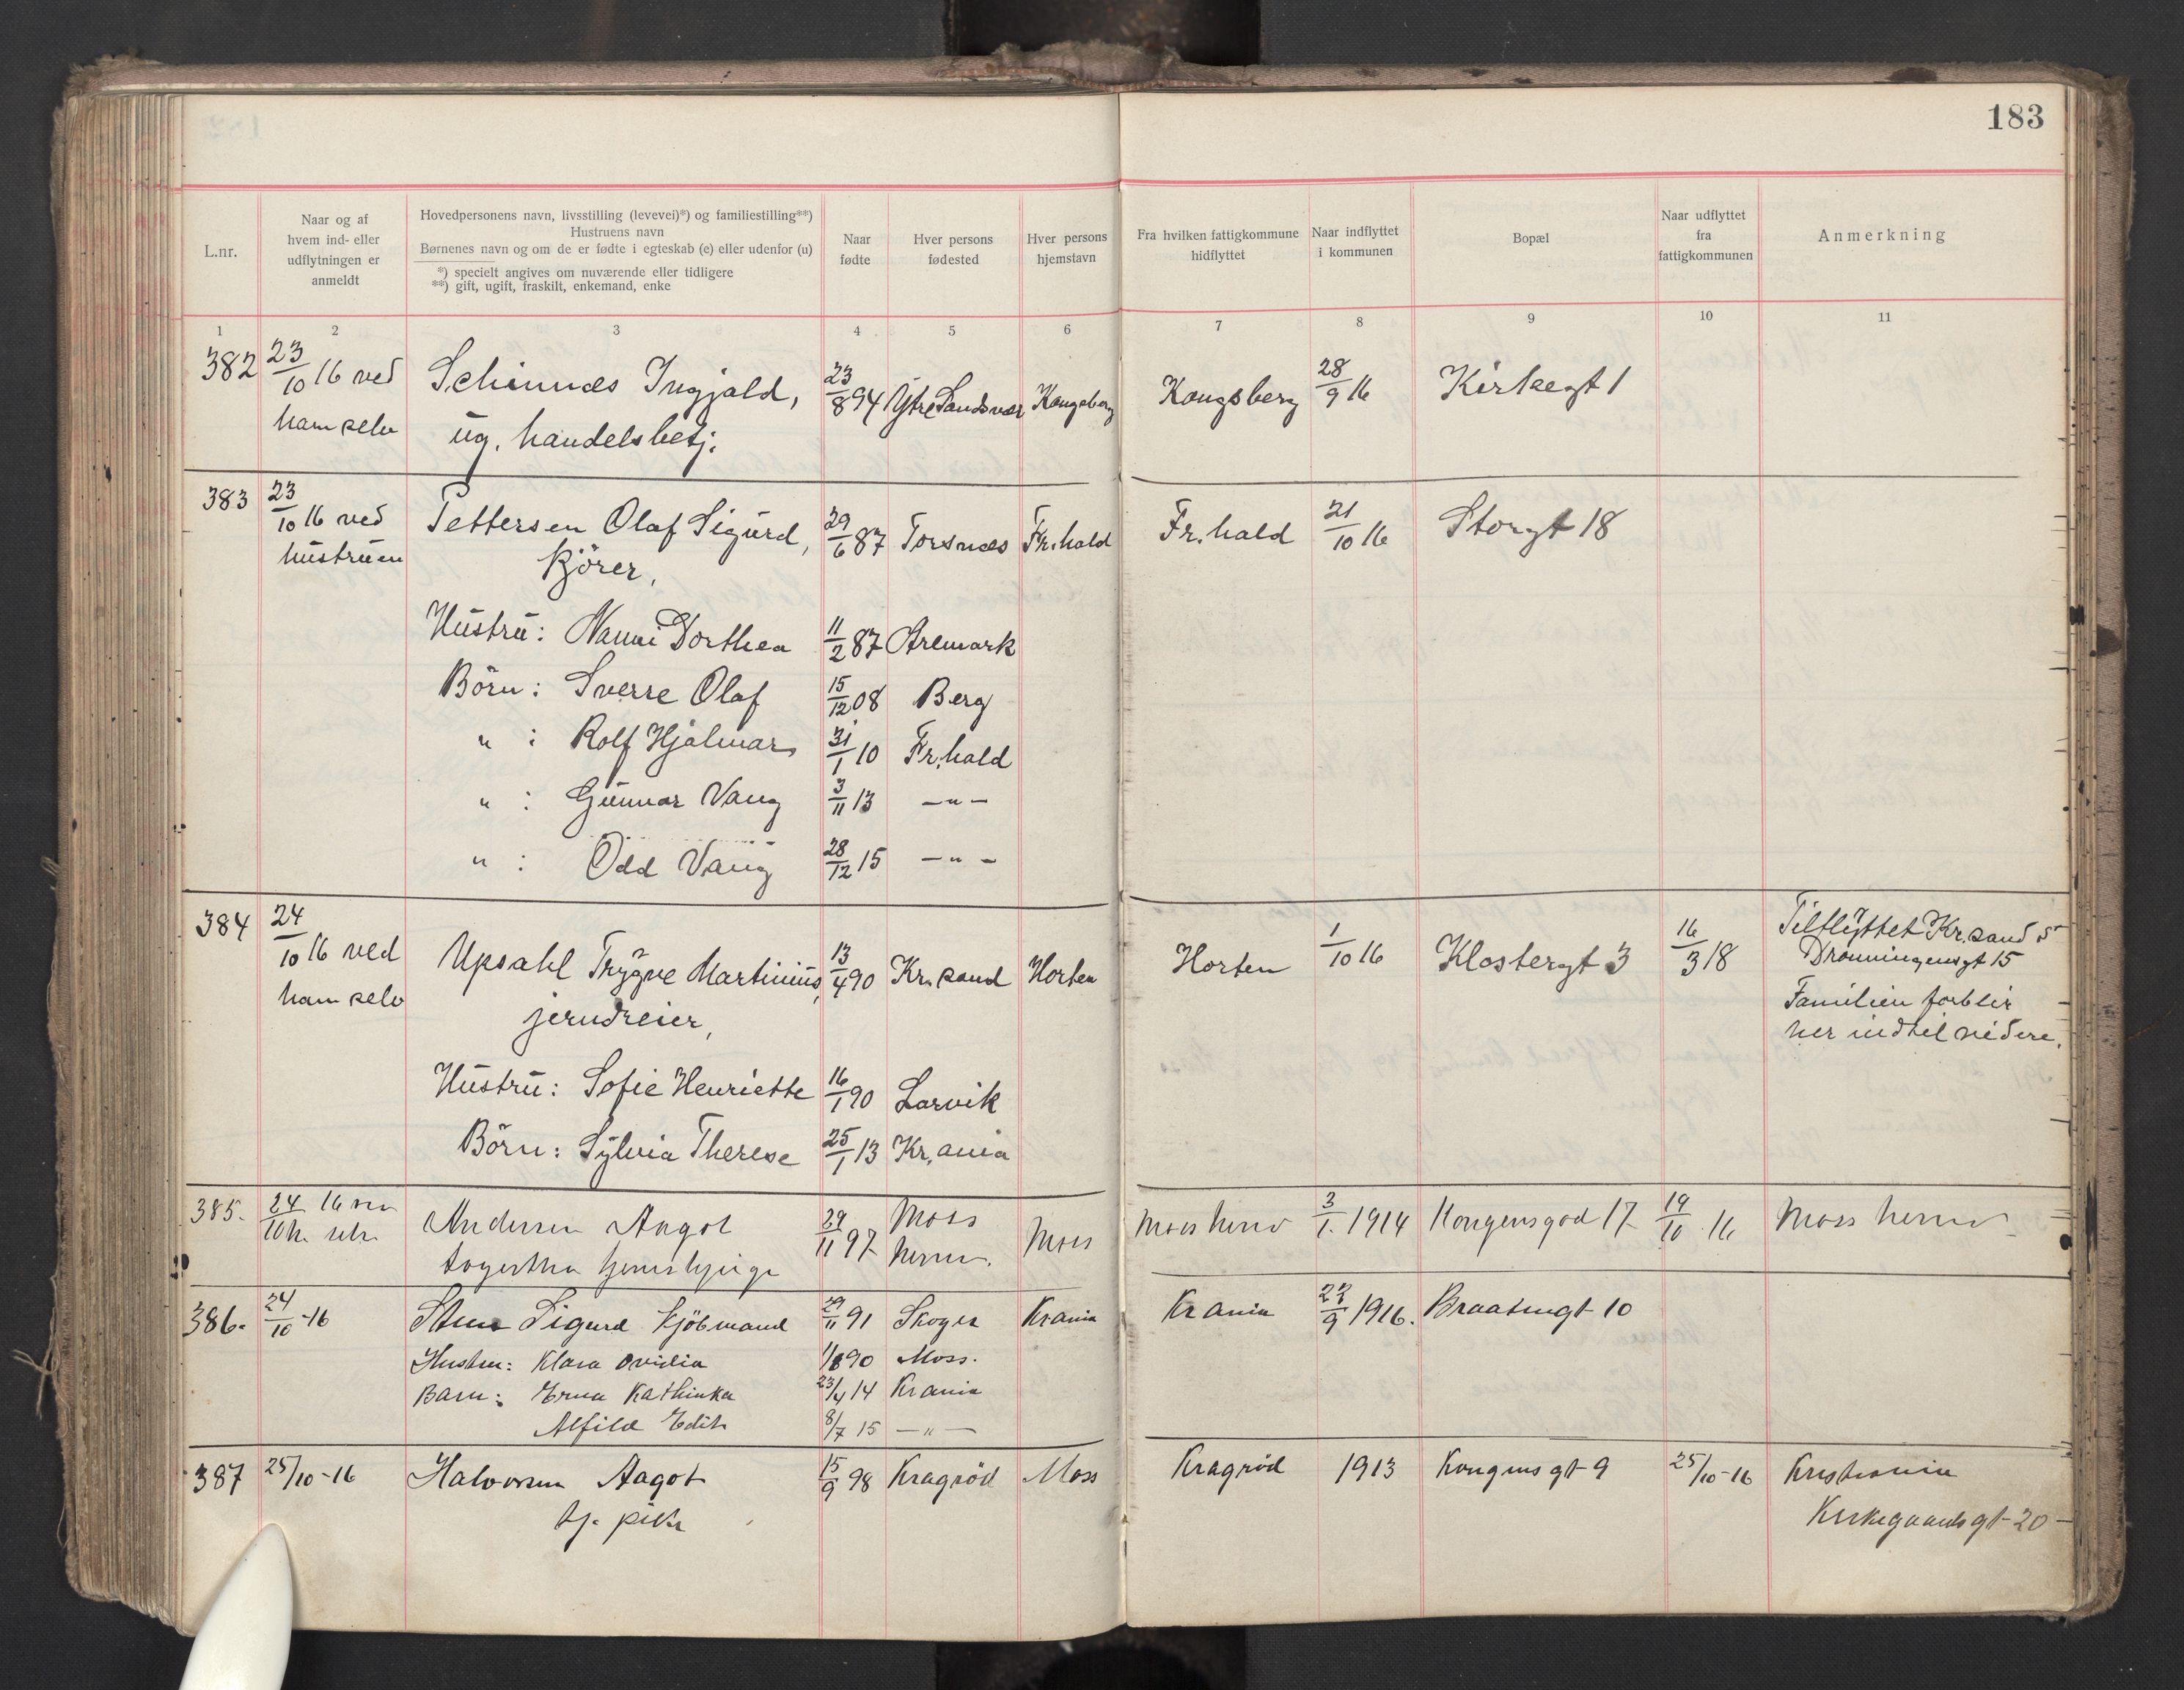 183
L.nr.
Naar og af
hvem ind- eller
udflytningen er
anmeldt
Hovedpersonens navn, livsstilling (levevei)*) og familiestilling**)
Hustruens navn
Børnenes navn og om de er fødte i egteskab (e) eller udenfor (u)
*) specielt angives om nuværende eller tidligere
**) gift, ugift, fraskilt, enkemand, enke
Naar
fødte
Hver persons
fødested
Hver persons
hjemstavn
Fra hvilken fattigkommune
hidflyttet
Naar indflyttet
i kommunen
Bopæl
Naar udflyttet
fra
fattigkommunen
Anmerkning
1 2 3 4 5 6 7 8 9 10 11
382 23/10 16 ved Schinnæs Ingjald, 23/8 94 Ytre Sandsvær Kongsberg Kongsberg 28/9 16 Kirkegt 1
ham selv ug. handelsbetj.
383 23/10 16 ved Pettersen Olaf Sigurd, 29/6 87 Torsnæs Fr.hald Fr.hald 21/10 16 Storgt 18
hustruen kjörer,
Hustru: Nanni Dorthea 11/2 87 Aremark
Börn: Sverre Olaf 15/12 08 Berg
" : Rolf Hjalmar 31/1 10 Fr.hald
" : Gunnar Vang 3/11 13 — " —
" : Odd Vang 28/12 15 — " —
384 24/10 16 ved Upsahl Trygve Martinius, 13/4 90 Kr.sand Horten Horten 1/10 16 Klostergt 3 16/3 18 Tilflyttet Kr.sand S
ham selv jerndreier, Dronningensgt 15
Familien forblir
her indtil videre.
Hustru: Sofie Henriette 16/1 90 Larvik
Börn: Sylvia Therese 25/1 13 Kr.ania
385. 24/10 16 h. selv Andersen Aagot 29/11 97 Moss herred. Moss Moss herred 3/1. 1914 Kongensgad 17 19/10 16 Moss herred
386. 24/10 -16 Sigurd kjöbmand 29/11 91 Skoger Krania Krania 1916. Braatengt 10
Hustru: Klara Ovidia 1/8 90 Moss.
Barn: Erna Kathinka 23/4 14 Krania
Alfild Edith 8/7 15 — " —
387 25/10-16 Halvorsen Aagot 15/9 98 Kragröd Moss Kragröd 1913 Kongens gt 9 25/10-16 Kristiania
tj. pike Kirkegaards gt 20